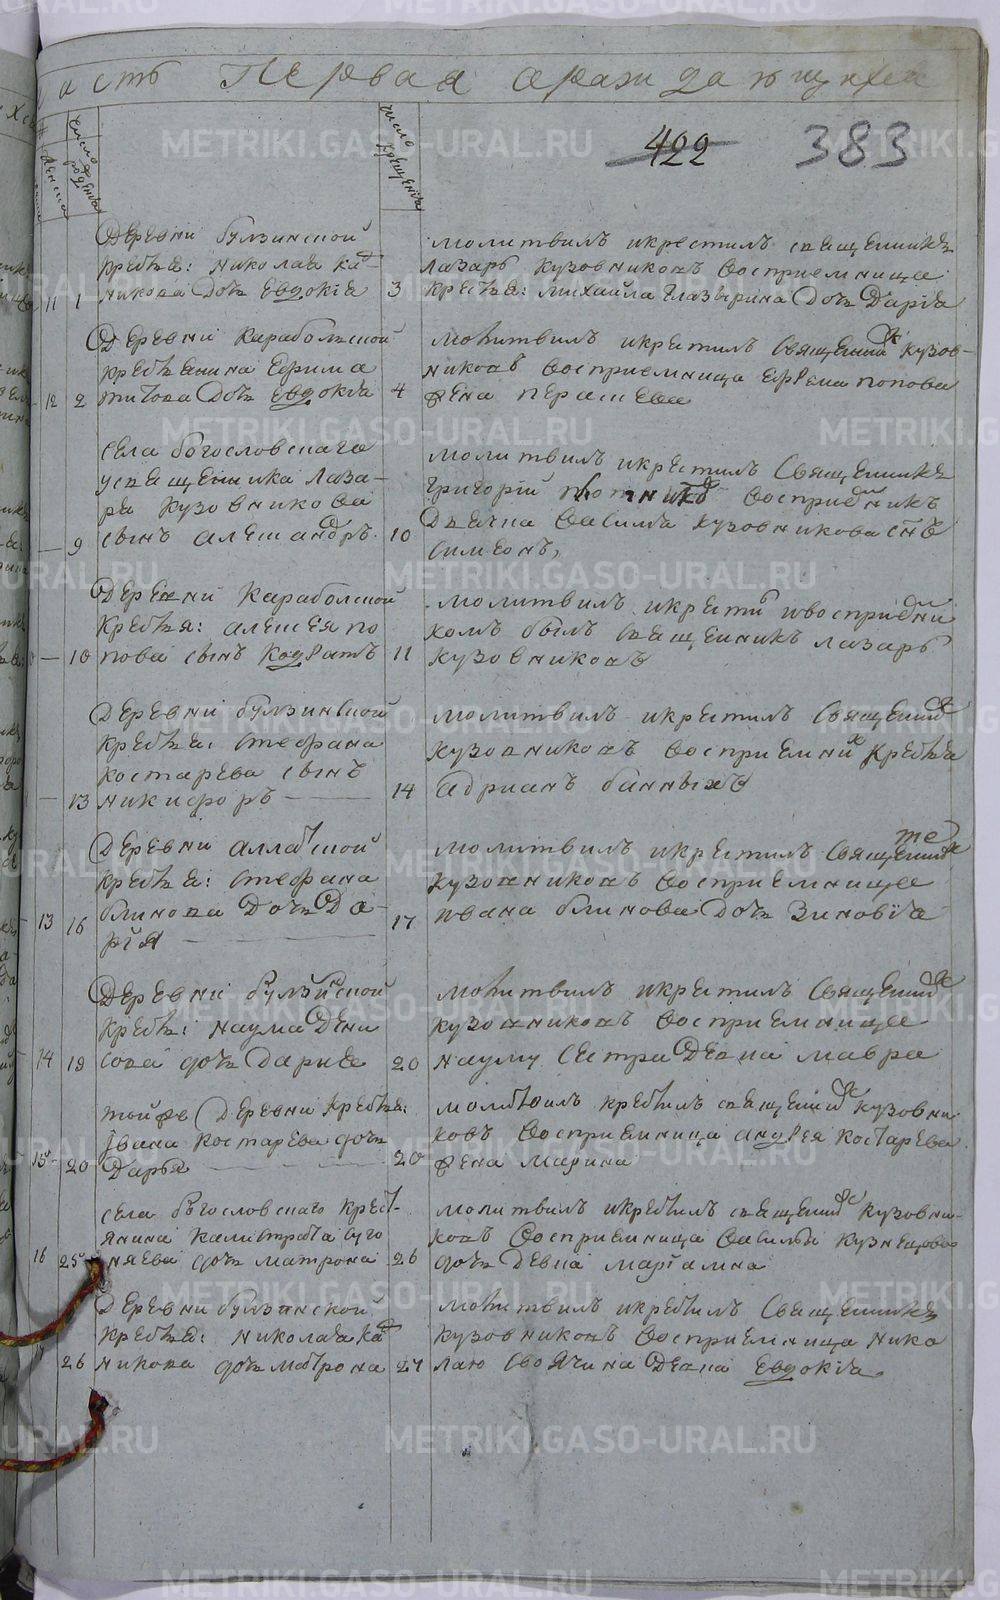 асть Первая оражидающихся
422 383
женска
число рожденїя
число крещенїя
Деревни булзинской
крестья: николая ка-
11 1 никова дочь Евдокїя
3
молитвилъ икрестилъ священникъ
лазарь кузовниковъ восприемница
крестья: михаила глазырина дочь Дарїа
Деревни Караболской
крестьянина Ефима
12 2 титова Дочь Евдокїа
4
молитвилъ икрестилъ Священникъ кузов-
никовъ восприемница Ефрема попова
жена
села богословскаго
усвященника лаза-
ря кузовникова
— 9 сынъ александръ.
10
молитвилъ икрестилъ Священникъ
григорїй восприемникъ
Дьячка Василья кузовникова сынъ
симеонъ,
Деревни Караболской
крестья: алексея по
— 10 пова сынъ кодратъ
11
молитвилъ икрести ивосприемни
комъ былъ священникъ лазарь
кузовниковъ
Деревни булзинской
крестья: стефана
костарева сынъ
— 13 никифоръ —
14
молитвилъ икрестилъ Священникъ
кузовниковъ восприемникъ крестья
адрианъ банныхъ
Деревни аллакской
крестья: стефана
блинова Дочь Да-
13 16 рїя —
17
молитвилъ икрестилъ Священникъ тоже
кузовниковъ восприемница
ивана блинова Дочь Зиновїа
Деревни булзинской
крестья: наума Дени
14 19 сова дочь Дарья
20
молитвилъ икрестилъ Священникъ
кузовниковъ восприемница
науму сестра Девка мавра
тойже Деревни крестья:
Ївана костарева дочь
15 20 Дарья —
20
молитвилъ крестилъ священникъ кузовни
ковъ восприемница андрея костарева
жена марина
села богословскаго крест-
янина калистрата
16 25 няева дочь матрона
26
молитвилъ икрестилъ священникъ кузовни-
ковъ восприемница василья кузнецова
дочь Девка марїамна
Деревни булзинской
крестья: николая ка
26 никова дочь матрона
27
молитвилъ икрестилъ Священникъ
кузовниковъ восприемница нико
лаю своячина Девка Евдокїа.
METRIKI.GASO-URAL.RU